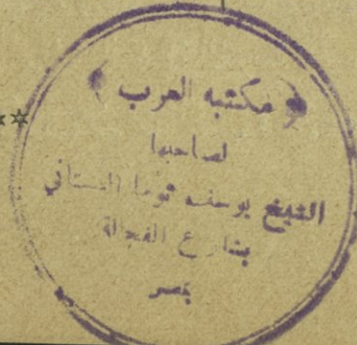 ﴿ مكتبة العرب ﴾
لصاحبها
الشيخ يوسف توما البستاني
بشارع الفجالة
بمصر